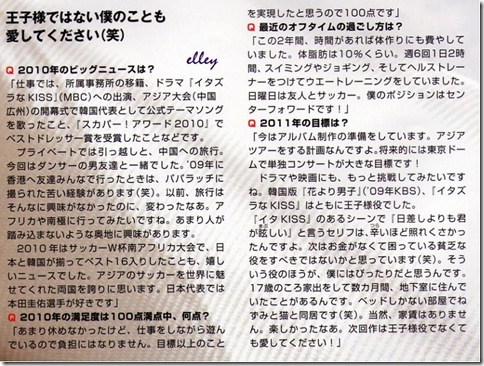 王子様ではない僕のことも
愛してください(笑)
elley
Q 2010年のビッグニュースは?
「仕事では、所属事務所の移籍、ドラマ『イタズ
ラなKISS』(MBC)への出演、アジア大会(中国
広州)の開幕式で韓国代表として公式テーマソング
を歌ったこと、『スカパー!アワード2010』で
ベストドレッサー賞を受賞したことなどです。
プライベートでは引っ越しと、中国への旅行。
今回はダンサーの男友達と一緒でした。'09年に
香港へ友達みんなで行ったときは、パパラッチに
撮られた苦い経験があります(笑)。以前、旅行は
そんなに興味がなかったのに、変わったなあ。ア
フリカや南極に行ってみたいですね。あまり人が
踏み込まないような奥地に興味があります。
2010年はサッカーW杯南アフリカ大会で、日
本と韓国が揃ってベスト16入りしたことも、嬉し
いニュースでした。アジアのサッカーを世界に魅
せてくれた両国を誇りに思います。日本代表では
本田圭佑選手が好きです」
Q 2010年の満足度は100点満点中、何点?
「あまり休めなかったけど、仕事をしながら遊ん
でいるので負担にはなりません。目標以上のこと
を実現したと思うので100点です」
Q 最近のオフタイムの過ごし方は?
「この2年間、時間があれば体作りにも費やして
いました。体脂肪は10%くらい。週6回1日2時
間、スイミングやジョギング、そしてヘルストレー
ナーをつけてウエートレーニングをしていました。
日曜日は友人とサッカー。僕のポジションはセン
ターフォワードです!」
Q 2011年の目標は?
「今はアルバム制作の準備をしています。アジア
ツアーをする計画なんですよ。将来的には東京ドー
ムで単独コンサートが大きな目標です!
ドラマや映画にも、もっと挑戦してみたいです
ね。韓国版『花より男子』('09年KBS)、『イタズ
ラなKISS』はともに王子様役でした。
『イタKISS』のあるシーンで「日差しよりも君
が眩しい」と言うセリフは、辛いほど照れくさかっ
たんですよ。次はお金がなくて困っている貧乏な
役をすべきではないかと思っています(笑)。そう
いう役のほうが、僕にはぴったりだと思うんです。
17歳のころ家出をして数カ月間、地下室に住んで
いたことがあるんです。ベッドしかない部屋でね
ずみと猫と同居です(笑)。当然、家賃はありませ
ん。楽しかったなあ。次回作は王子様役でなくて
も愛してください!」